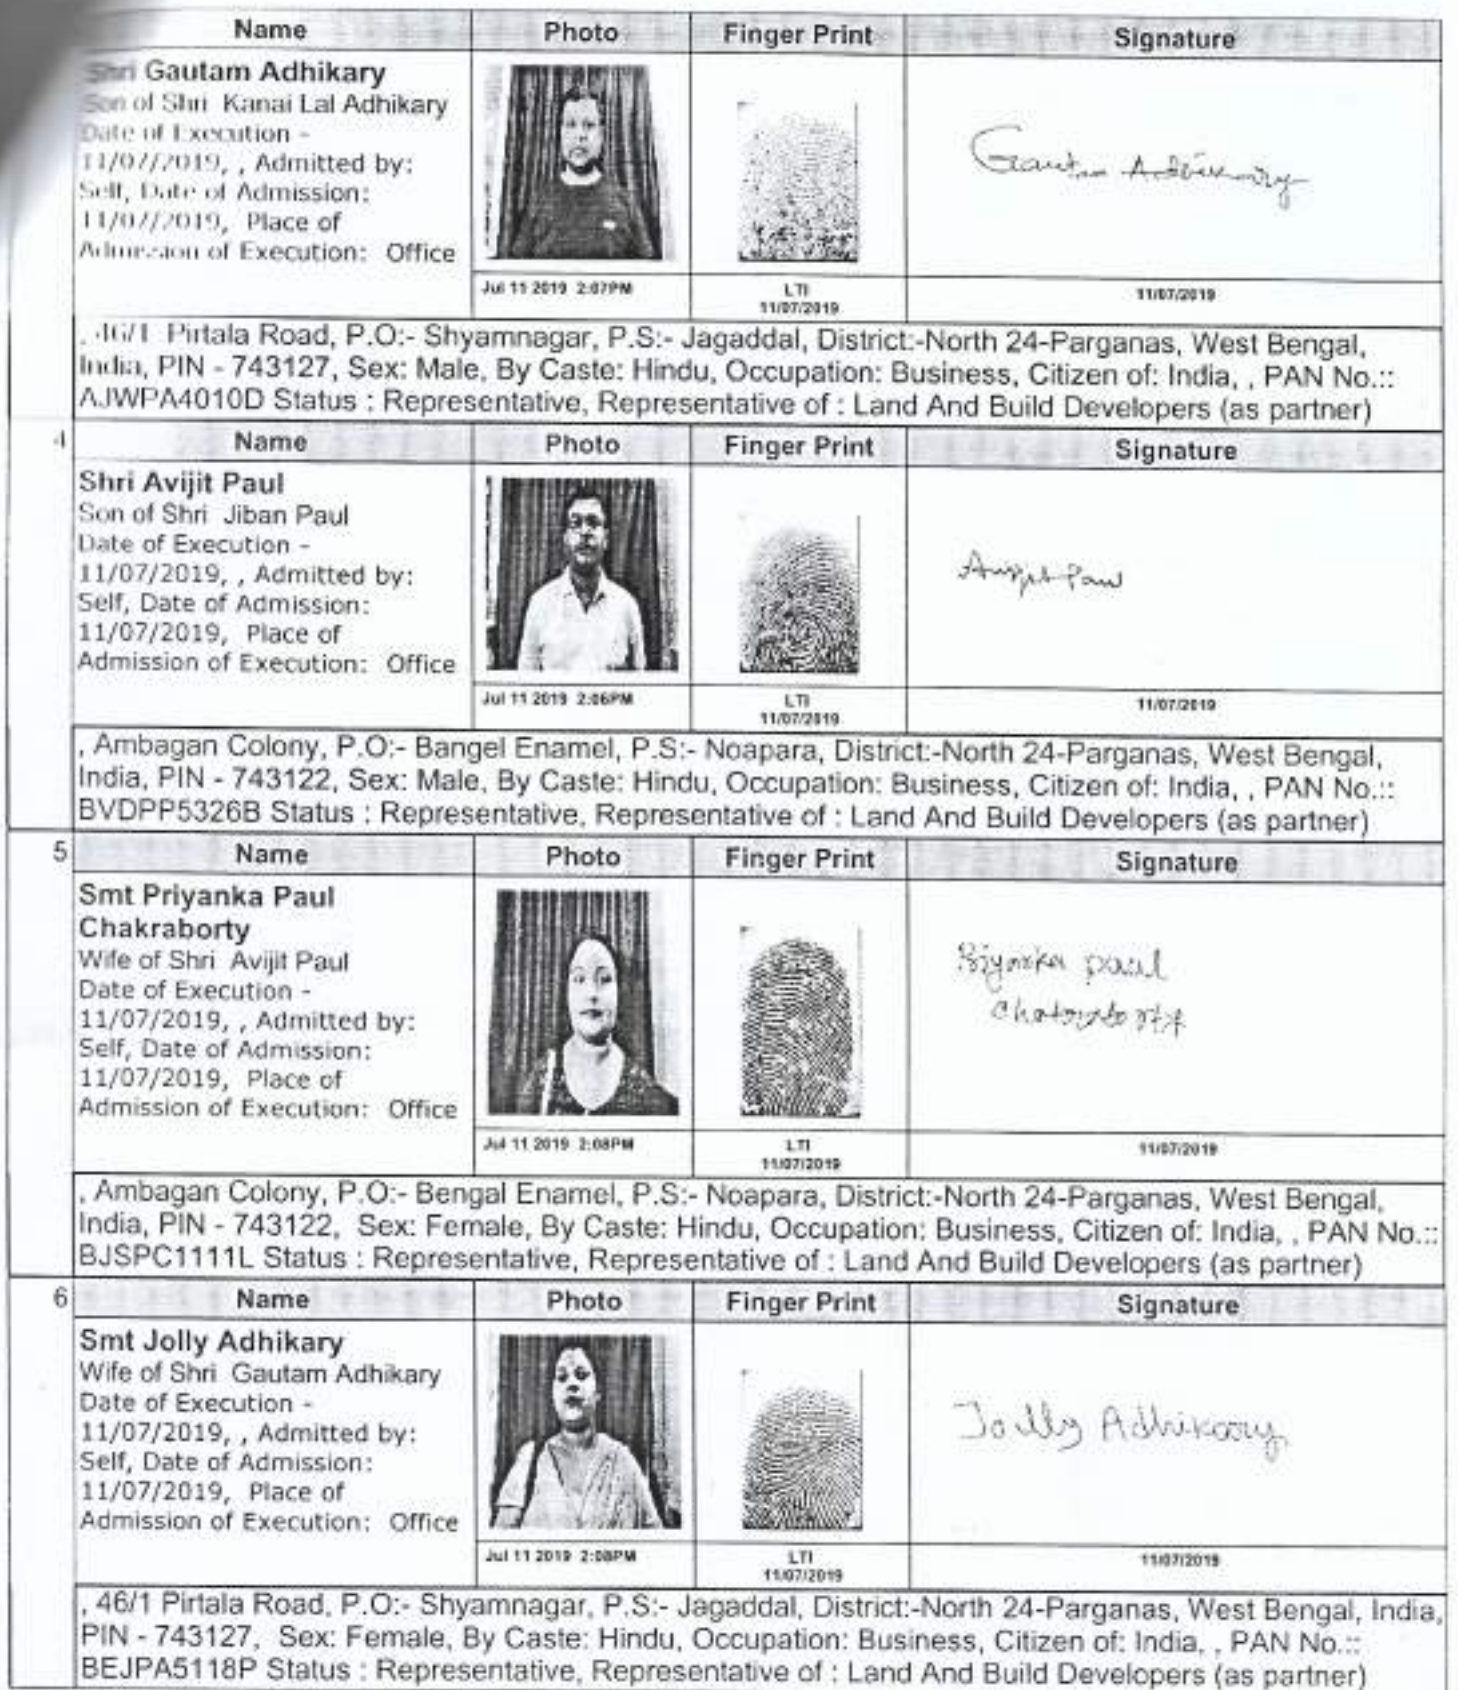 Name Photo Finger Print Signature
Shri Gautam Adhikary
Son of Shri Kanai Lal Adhikary
Date of Execution -
11/07/2019, , Admitted by:
Self, Date of Admission:
11/07/2019, Place of
Admission of Execution: Office
Gautam Adhikary
Jul 11 2019 2:07PM LTI 11/07/2019
11/07/2019
, 46/1 Pirtala Road, P.O:- Shyamnagar, P.S:- Jagaddal, District:-North 24-Parganas, West Bengal,
India, PIN - 743127, Sex: Male, By Caste: Hindu, Occupation: Business, Citizen of: India, , PAN No.::
AJWPA4010D Status : Representative, Representative of : Land And Build Developers (as partner)
4 Name Photo Finger Print Signature
Shri Avijit Paul
Son of Shri Jiban Paul
Date of Execution -
11/07/2019, , Admitted by:
Self, Date of Admission:
11/07/2019, Place of
Admission of Execution: Office
Avijit Paul
Jul 11 2019 2:06PM LTI 11/07/2019
11/07/2019
, Ambagan Colony, P.O:- Bangel Enamel, P.S:- Noapara, District:-North 24-Parganas, West Bengal,
India, PIN - 743122, Sex: Male, By Caste: Hindu, Occupation: Business, Citizen of: India, , PAN No.::
BVDPP5326B Status : Representative, Representative of : Land And Build Developers (as partner)
5 Name Photo Finger Print Signature
Smt Priyanka Paul
Chakraborty
Wife of Shri Avijit Paul
Date of Execution -
11/07/2019, , Admitted by:
Self, Date of Admission:
11/07/2019, Place of
Admission of Execution: Office
Priyanka paul
Chakraborty
Jul 11 2019 2:08PM LTI 11/07/2019
11/07/2019
, Ambagan Colony, P.O:- Bengal Enamel, P.S:- Noapara, District:-North 24-Parganas, West Bengal,
India, PIN - 743122, Sex: Female, By Caste: Hindu, Occupation: Business, Citizen of: India, , PAN No.::
BJSPC1111L Status : Representative, Representative of : Land And Build Developers (as partner)
6 Name Photo Finger Print Signature
Smt Jolly Adhikary
Wife of Shri Gautam Adhikary
Date of Execution -
11/07/2019, , Admitted by:
Self, Date of Admission:
11/07/2019, Place of
Admission of Execution: Office
Jolly Adhikary
Jul 11 2019 2:08PM LTI 11/07/2019
11/07/2019
, 46/1 Pirtala Road, P.O:- Shyamnagar, P.S:- Jagaddal, District:-North 24-Parganas, West Bengal, India,
PIN - 743127, Sex: Female, By Caste: Hindu, Occupation: Business, Citizen of: India, , PAN No.::
BEJPA5118P Status : Representative, Representative of : Land And Build Developers (as partner)